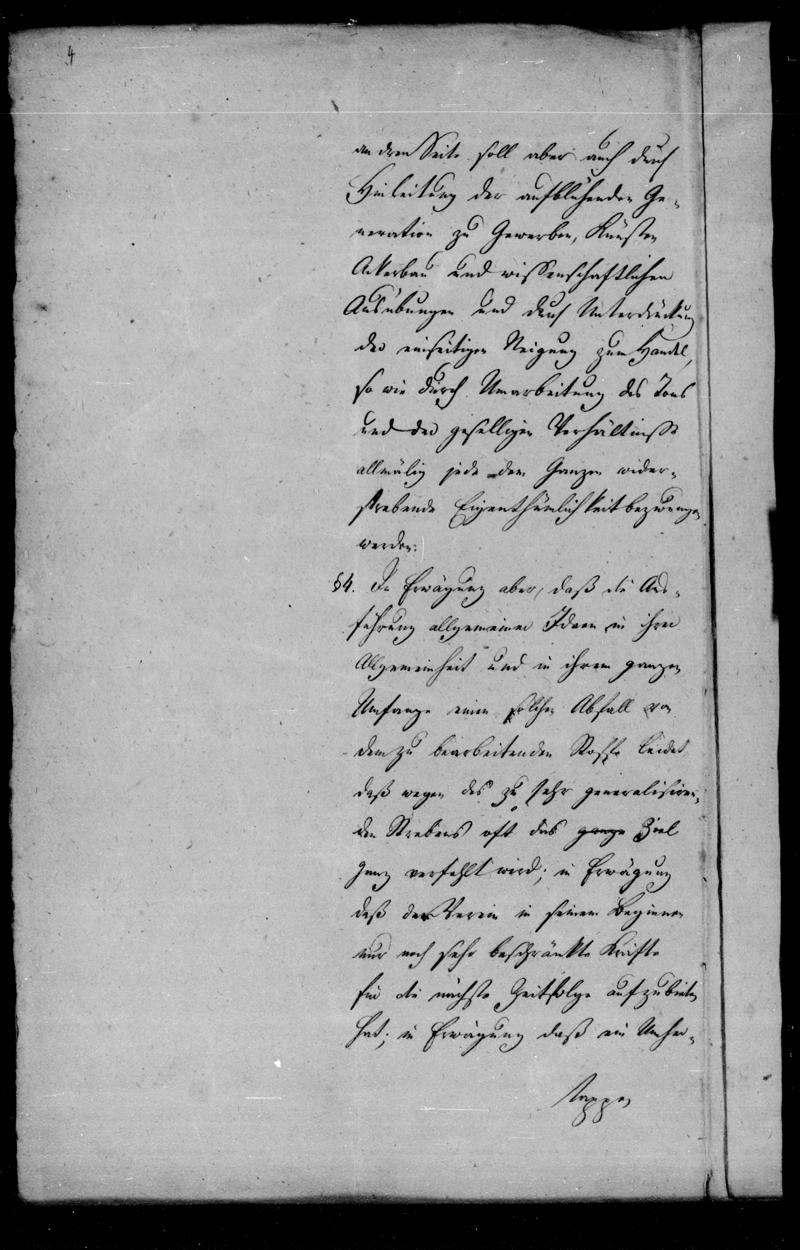 4
andren Seite soll aber auch durch
Hinleitung der aufblühenden Ge-
neration zu Gewerben, Künsten
Ackerbau und wissenschaftlichen
Ausübungen und durch Unterdrückung
der einseitigen Neigung zum Handel,
so wie durch Umarbeitung des Tons
und der geselligen Verhältnisse
allmälig jede dem Ganzen wider-
strebende Eigenthümlichkeit bezwungen
werden.
§4. In Erwägung aber, daß die Aus-
führung allgemeiner Ideen in ihrer
Allgemeinheit und in ihrem ganzen
Umfange einen solchen Abfall von
dem zu bearbeitenden Stoffe leidet
daß wegen des zu sehr generalisiren-
den Strebens oft das ganze Ziel
ganz verfehlt wird; in Erwägung
daß der Verein in seinem Beginnen
nur noch sehr beschränkte Kräfte
für die nächste Zeitfolge aufzubieten
hat; in Erwägung daß ein Umher-
tappen